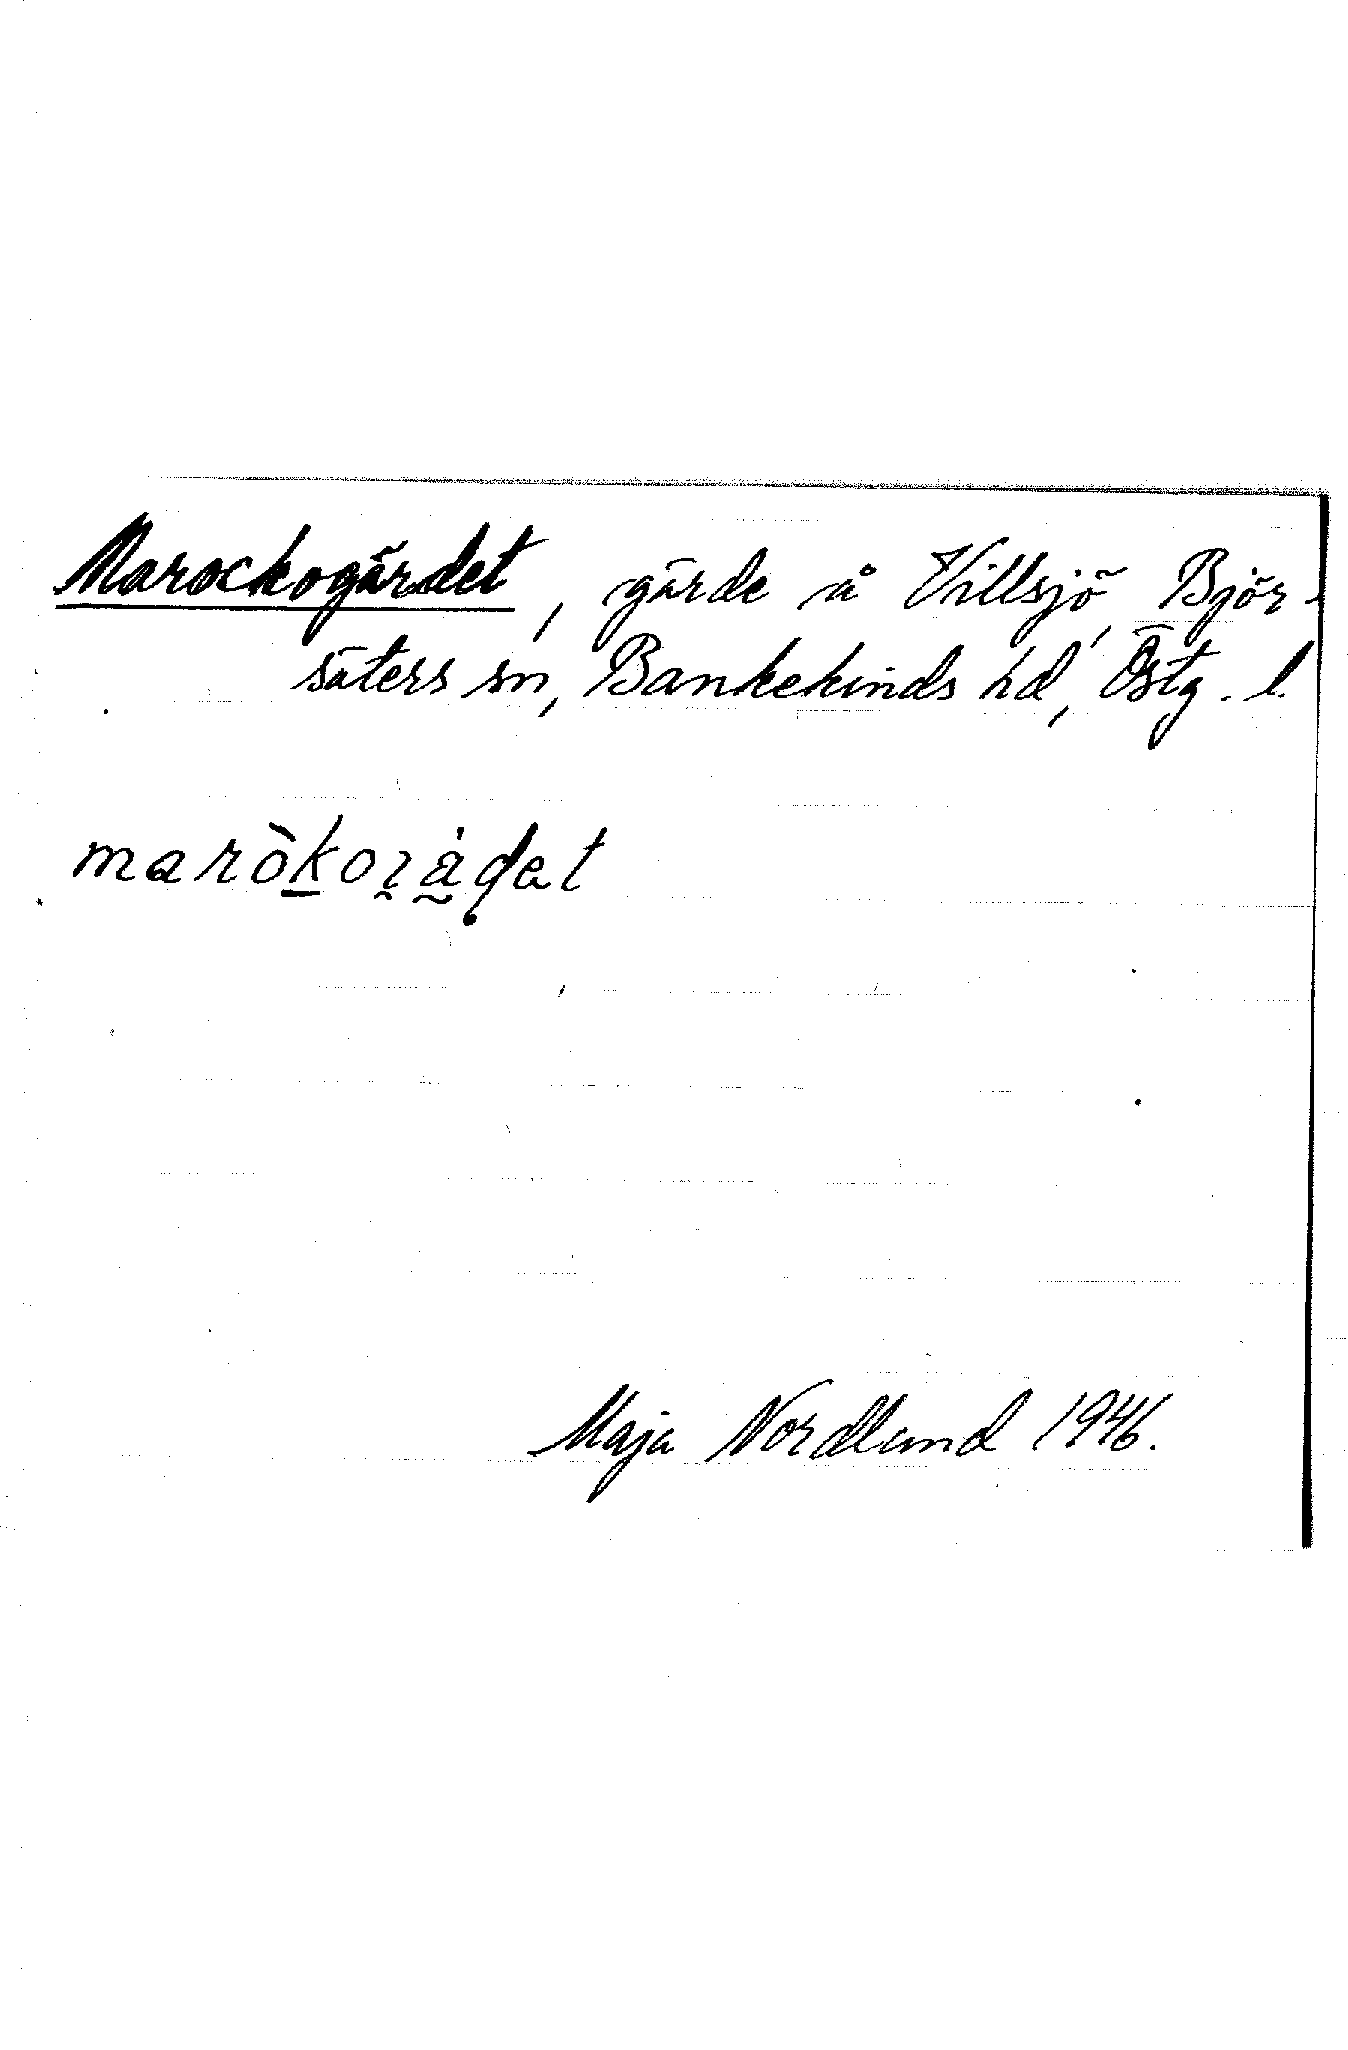 Marockogärdet, gärde å Villsjö, Björ-
säters sn, Bankekinds hd, Östg. l.
Maja Nordlund 1946.